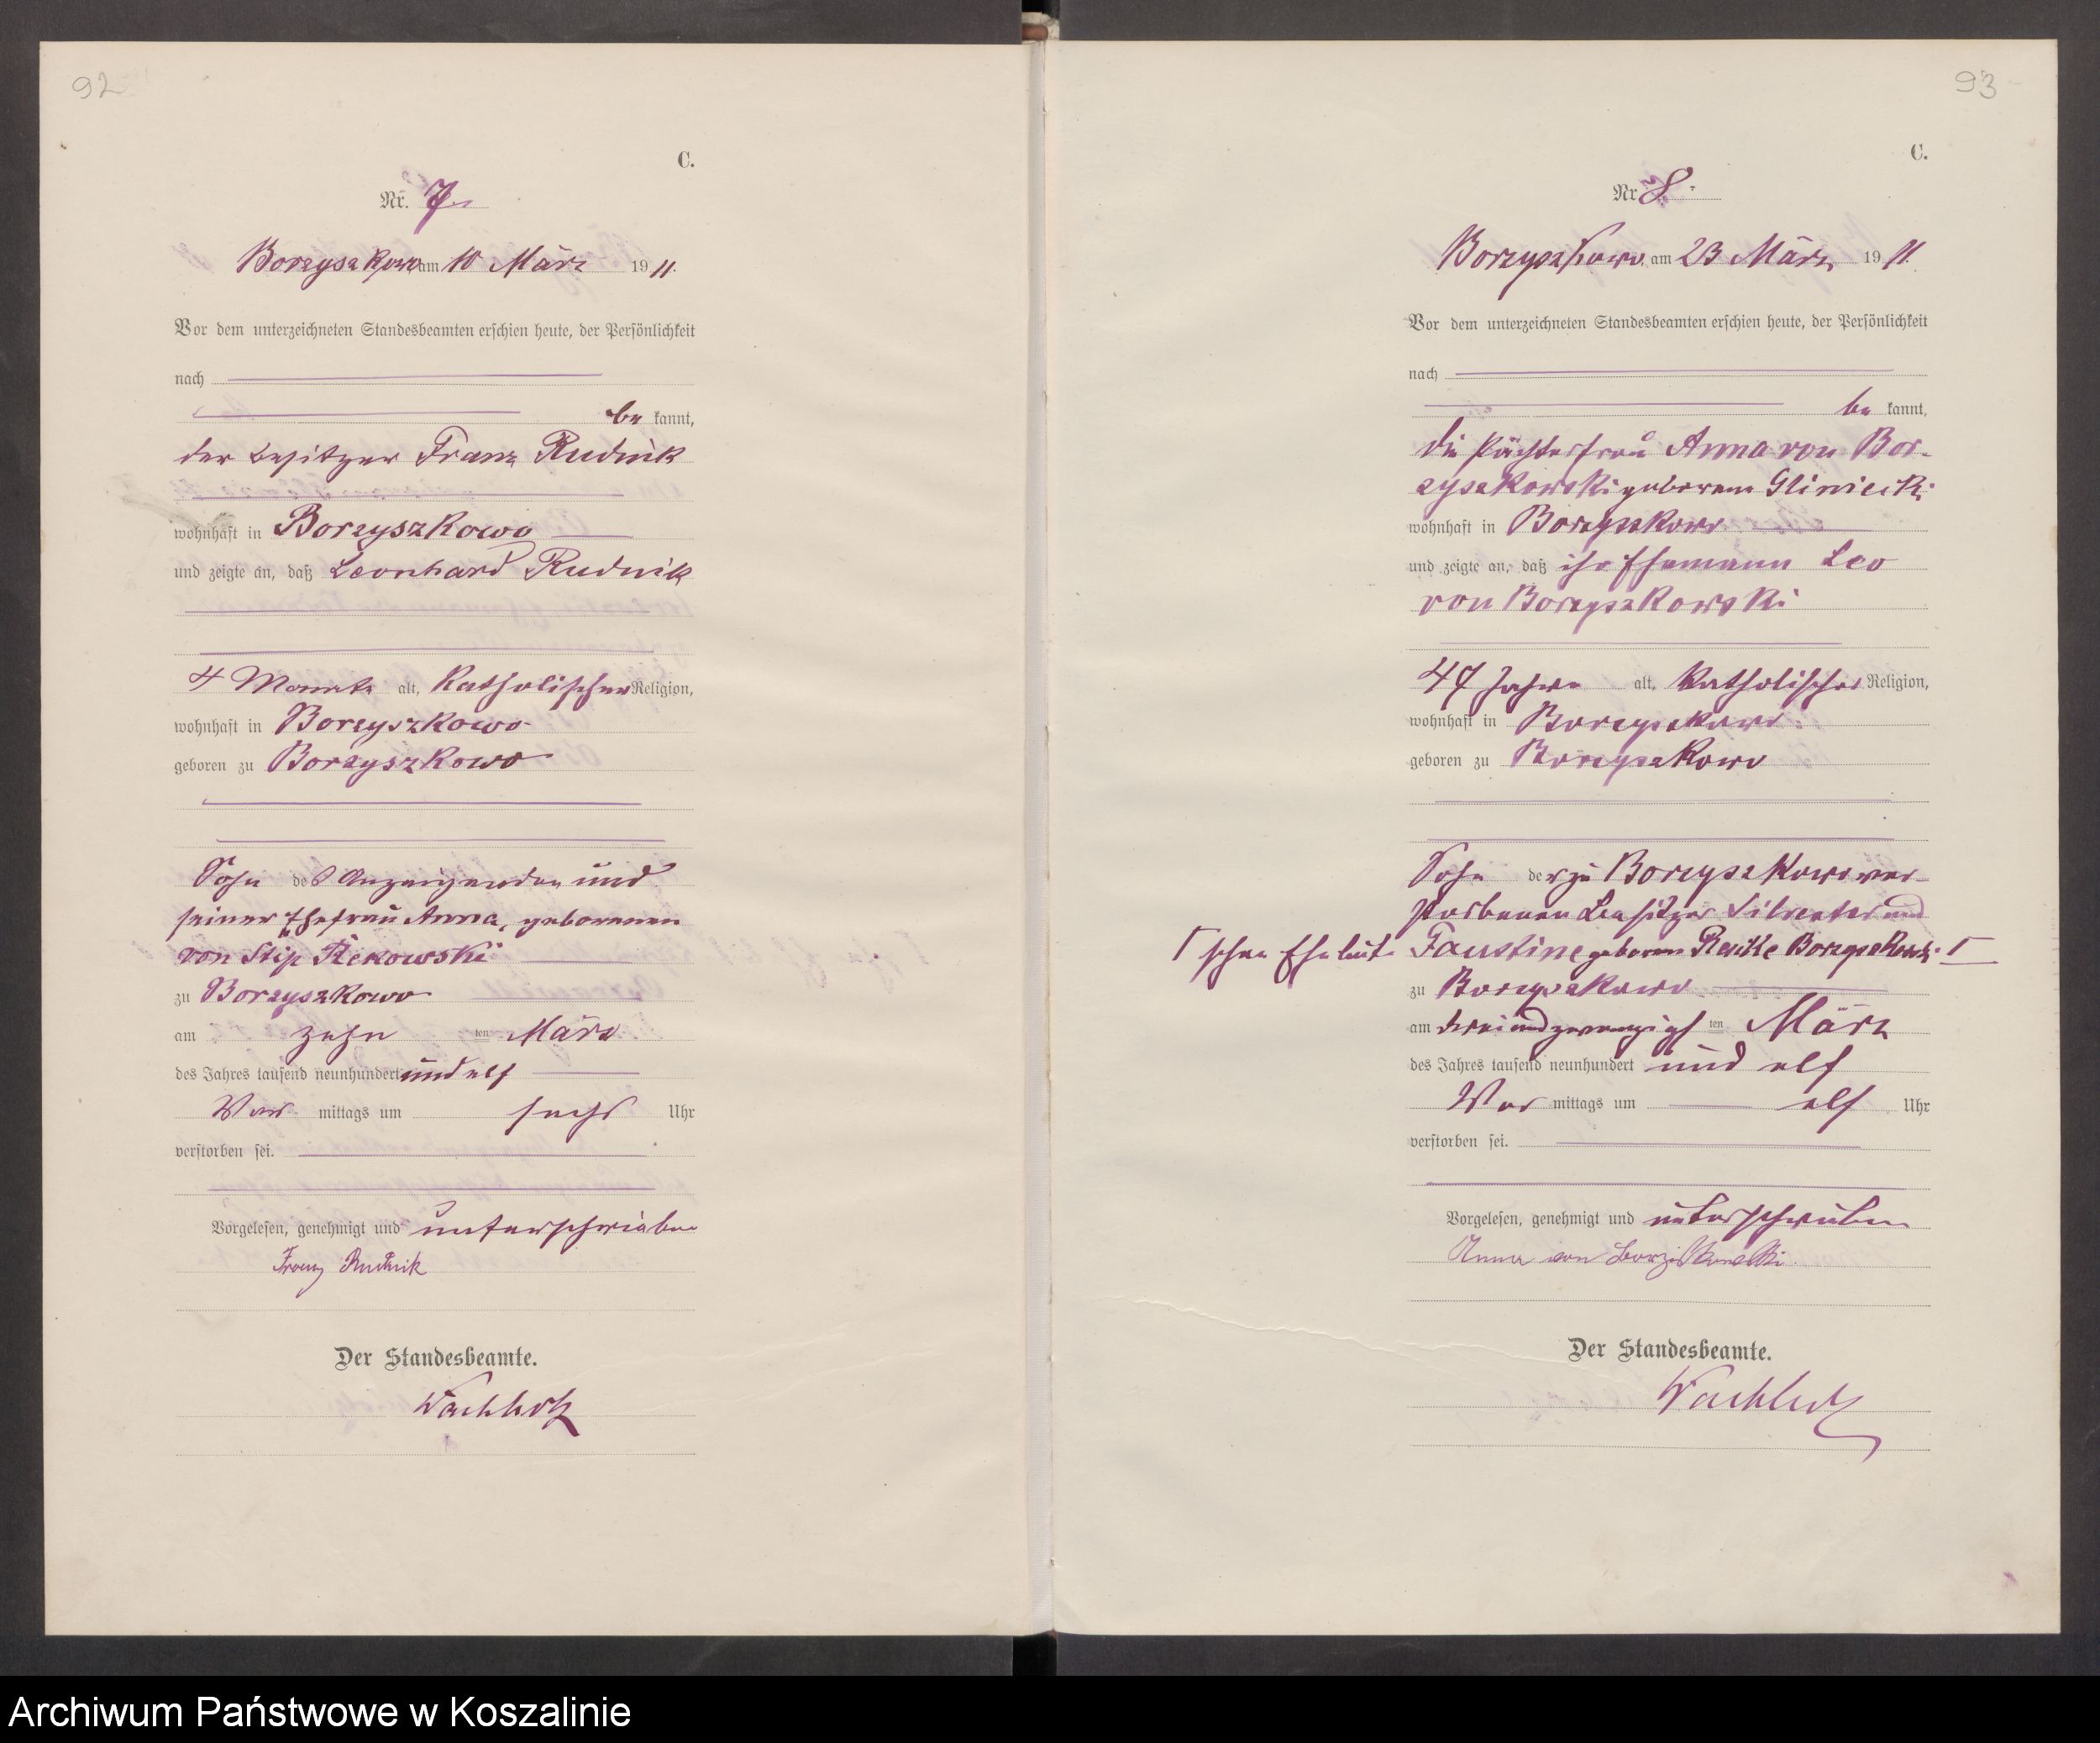 92
C.
Nr. 7.
Borzyszkowo am 10 März 1911.
Vor dem unterzeichneten Standesbeamten erschien heute, der Persönlichkeit
nach
be kannt,
der Besitzer Franz Rudnik
wohnhaft in Borzyszkowo
und zeigte an, daß Leonhard Rudnik
4 Monate alt, katholischer Religion,
wohnhaft in Borzyszkowo
geboren zu Borzyszkowo
Sohn des Anzeigenden und
seiner Ehefrau Anna, geborenen
von Stip Rekowski
zu Borzyszkowo
am zehn ten März
des Jahres tausend neunhundert und elf
Vor mittags um sechs Uhr
verstorben sei.
Vorgelesen, genehmigt und unterschrieben
Franz Rudnik
Der Standesbeamte.
Wachholz
93
C.
Nr. 8.
Borzyszkowo, am 23 März 1911.
Vor dem unterzeichneten Standesbeamten erschien heute, der Persönlichkeit
nach
be kannt,
die Pächterfrau Anna von Bor-
zyszkowski geborene Gliniecki
wohnhaft in Borzyszkowo
und zeigte an, daß ihr Ehemann Leo
von Borzyszkowski
47 Jahre alt, katholischer Religion,
wohnhaft in Borzyszkowo
geboren zu Borzyszkowo
Sohn der zu Borzyszkowo ver-
storbenen Besitzer Silvester und
Faustine geborene Borzyszkowski Γ
Γ schen Eheleute
zu Borzyszkowo
am dreiundzwanzigsten März
des Jahres tausend neunhundert und elf
Vor mittags um elf Uhr
verstorben sei.
Vorgelesen, genehmigt und unterschrieben
Anna von
Der Standesbeamte.
Wachholz
Archiwum Państwowe w Koszalinie